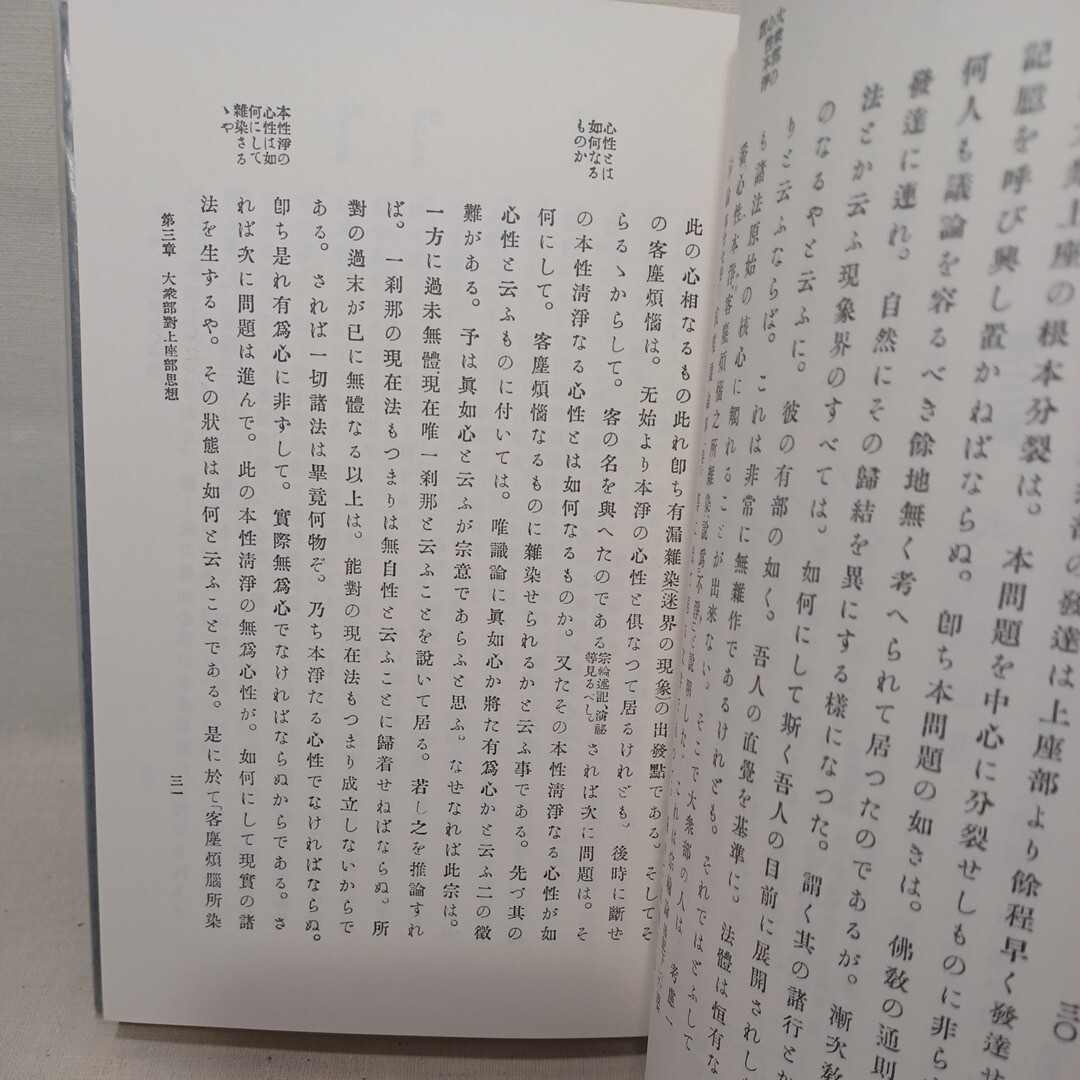 大衆部の
心性本淨
大衆上座の根本分裂は。本問題を中心に分裂せしものに非ら
記臆を呼び興し置かねばならぬ。卽ち本問題の如きは。佛敎の通則
何人も議論を容るべき餘地無く考へられて居つたのであるが。漸次敎
發達に連れ。自然にその歸結を異にする樣になつた。謂く其の諸行とか
法とか云ふ現象界のすべては。如何にして斯く吾人の目前に展開されし
のなるやと云ふに。彼の有部の如く。吾人の直覺を基準に。法體は恒有な
りと云ふならば。これは非常に無雜作であるけれども。それではどふして
も諸法原始の核心に觸れることが出來ない。そこで大衆部の人は
三〇
心性とは
如何なる
ものか
本性淨の
心性は如
何にして
雜染さる
ゝや
此の心相なるもの此れ卽ち有漏雜染(迷界の現象)の出發點である。そしてそ
の客塵煩惱は。无始より本淨の心性と俱なつて居るけれども。後時に斷せ
らるゝからして。客の名を與へたのである宗輪述記、演祕等見るべし。されば次に問題は。そ
の本性淸淨なる心性とは如何なるものか。又たその本性淸淨なる心性が如
何にして。客塵煩惱なるものに雜染せられるかと云ふ事である。先づ其の
心性と云ふものに付いては。唯識論に眞如心か將た有爲心かと云ふ二の徵
難がある。予は眞如心と云ふが宗意であらふと思ふ。なぜなれば此宗は。
一方に過未無體、現在唯一刹那と云ふことを說いて居る。若し之を推論すれ
ば。一刹那の現在法もつまりは無自性と云ふことに歸着せねばならぬ。所
對の過末が已に無體なる以上は。能對の現在法もつまり成立しないからで
ある。されば一切諸法は畢竟何物ぞ。乃ち本淨たる心性でなければならぬ。
卽ち是れ有爲心に非ずして。實際無爲心でなければならぬからである。さ
れば次に問題は進んで。此の本性淸淨の無爲心性が。如何にして現實の諸
法を生ずるや。その狀態は如何と云ふことである。是に於て「客塵煩腦所染
第三章 大衆部對上座部思想
三一